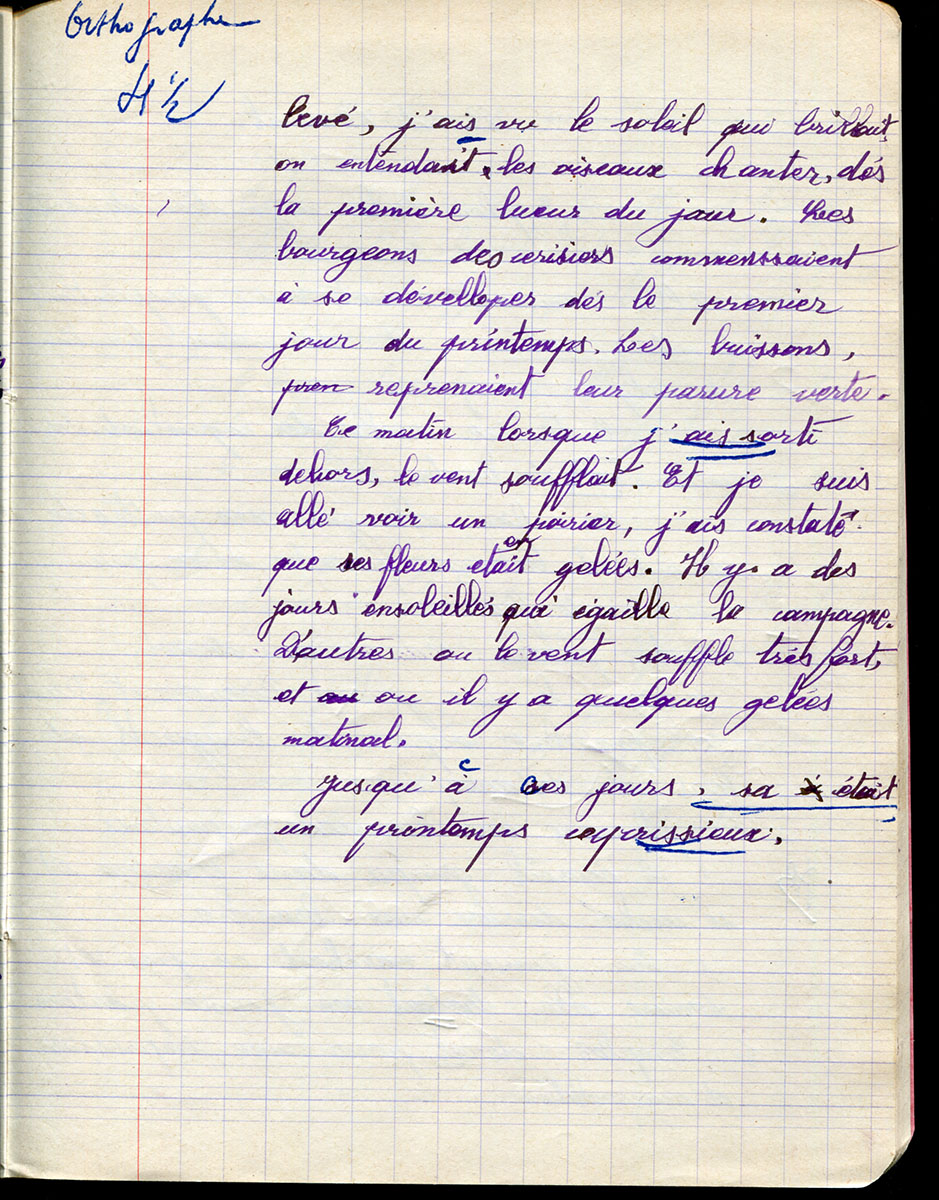 Orthographe
4 1/2
levé, j'ais vu le soleil qui brillait,
on entendait, les oiseaux chanter, dés
la première lueur du jour. Les
bourgeons des cerisiers commenssaient
à se dévelloper dés le premier
jour du printemps. Les buissons,
pren reprenaient leur parure verte.
Ce matin lorsque j'ais sorti
dehors, le vent soufflait. Et je suis
allé voir un poirier, j'ais constaté
que ses fleurs etait en gelées. Il y a des
jours ensoleillés qui égaille la campagne.
D'autres ou le vent souffle trés fort,
et au ou il y a quelques gelées
matinal.
Jusqu'à c ces jours, sa était
un printemps caprissieux.